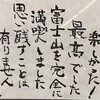 楽しかった！
最高でした
富士山を完全に
満喫しました
思い残すことは
有りません